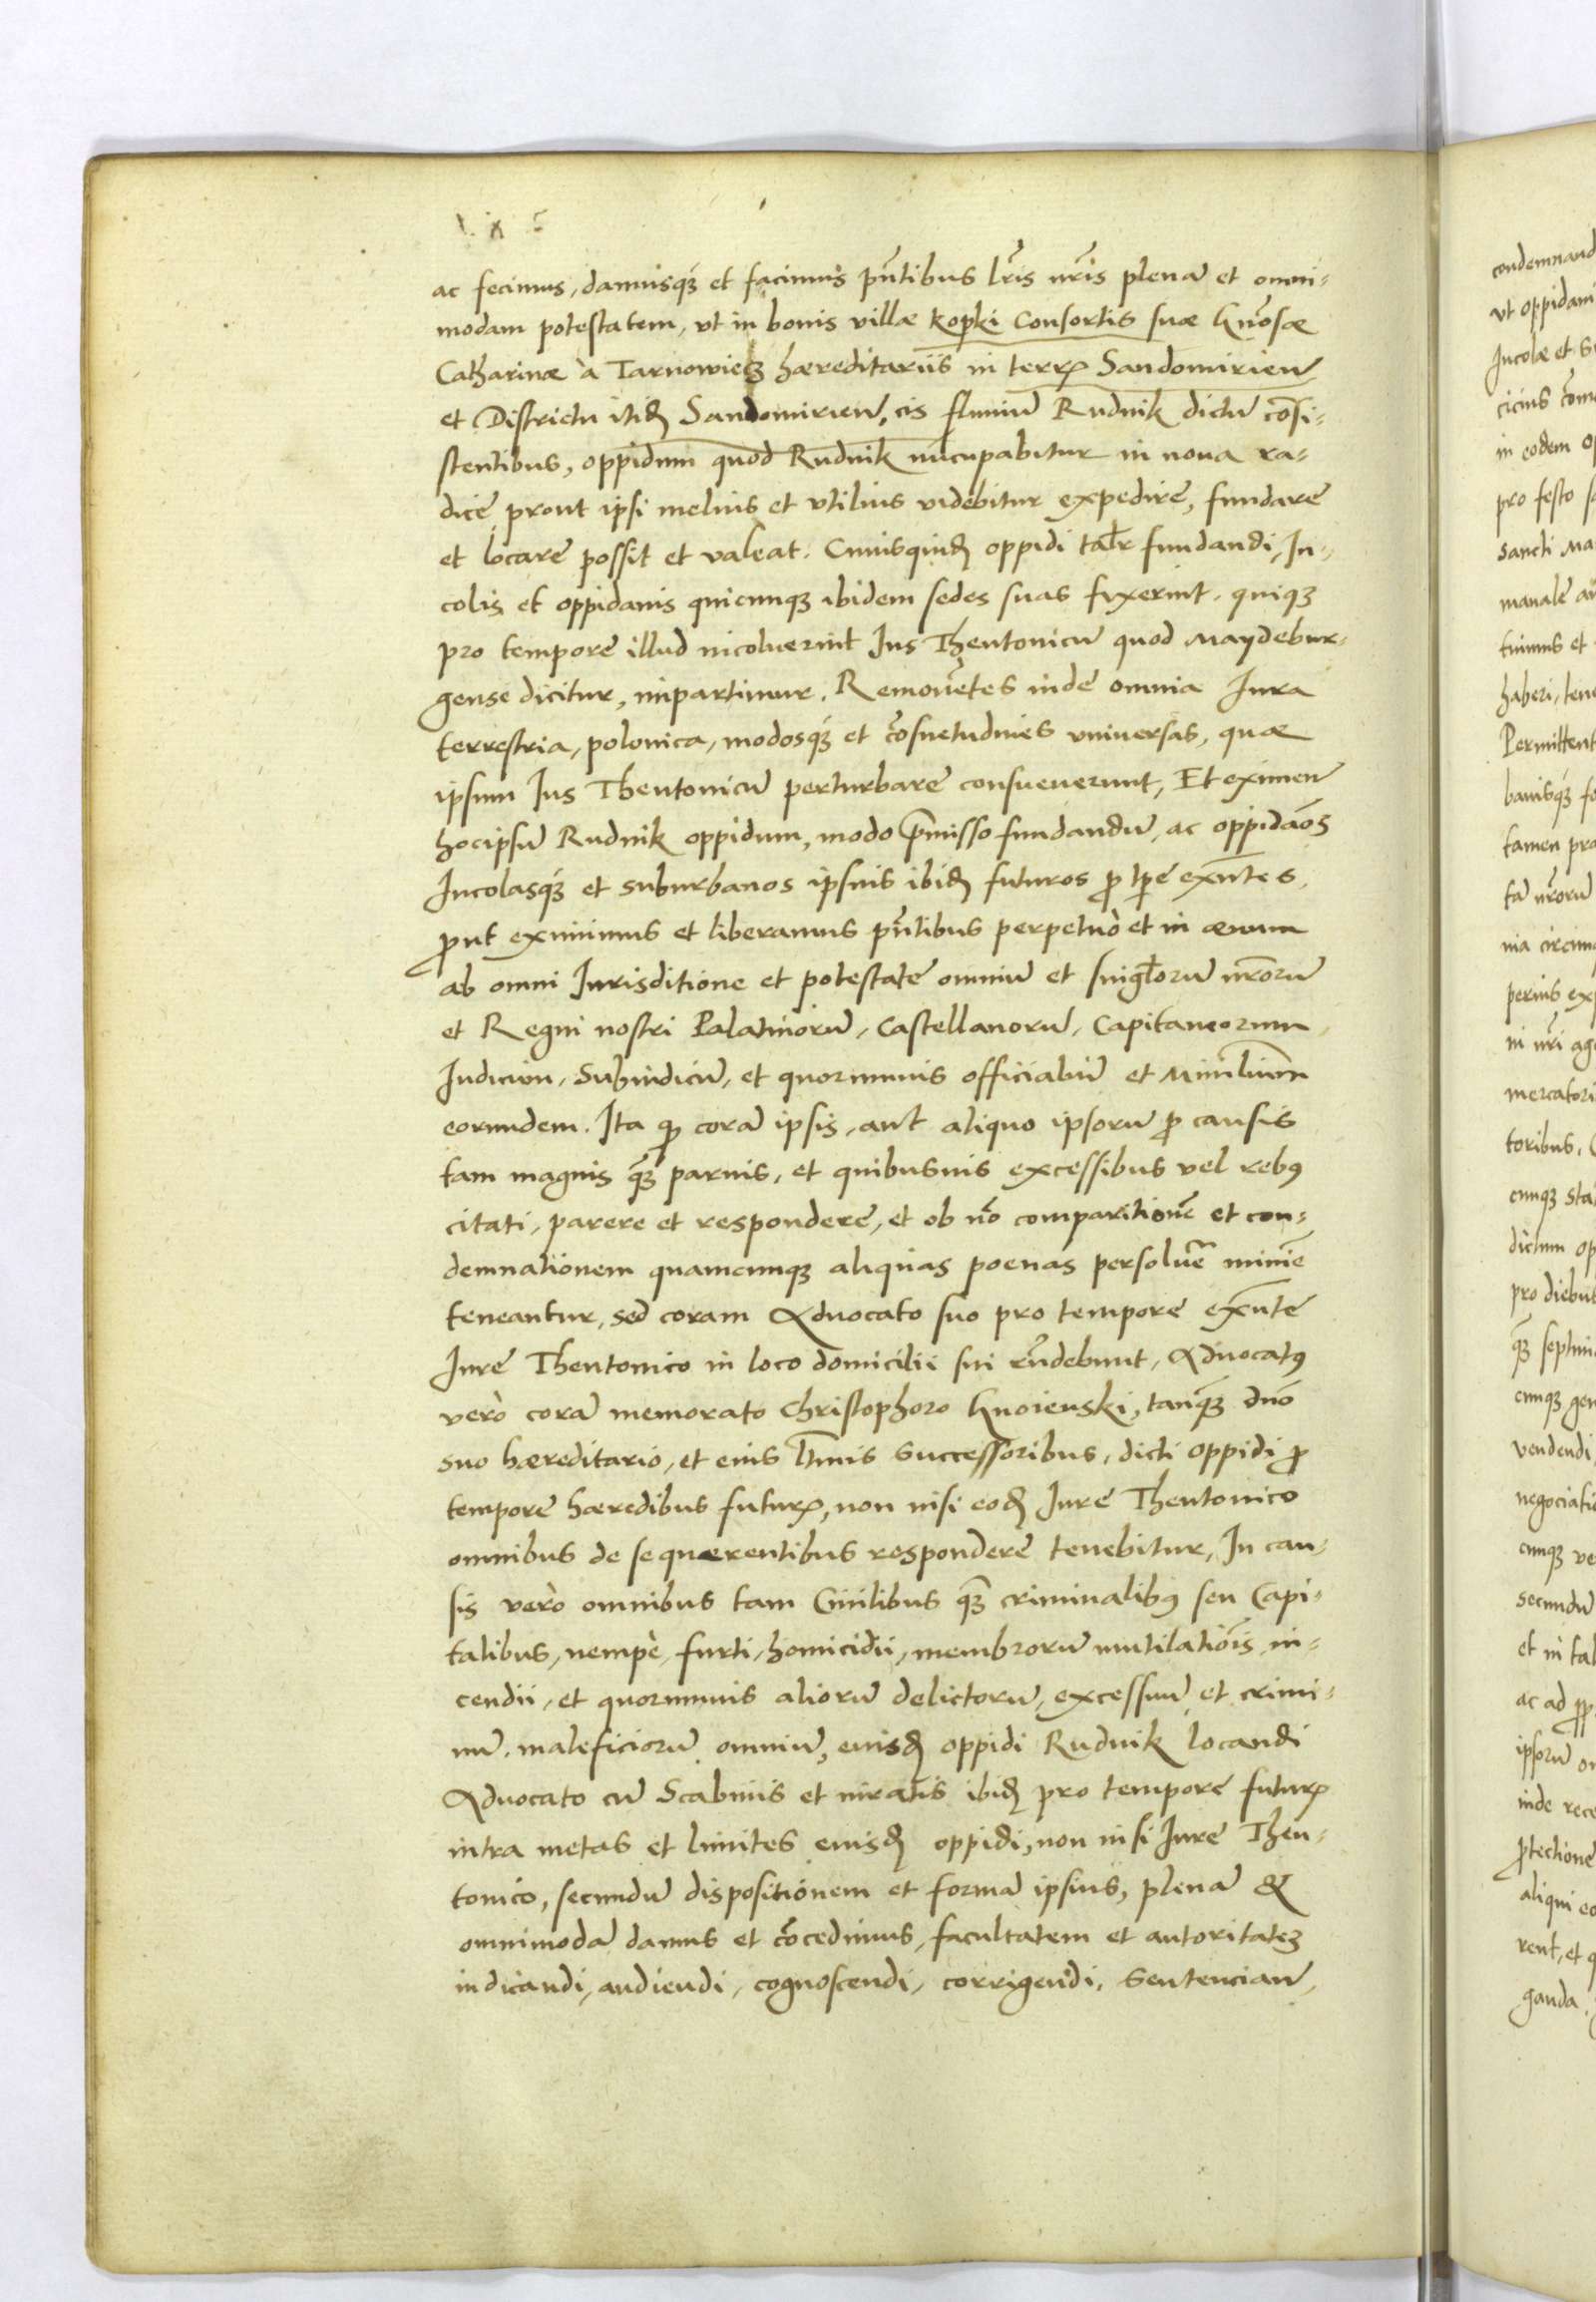 ac fecimus, damusqȝ et facimus pñtibus lr̃is nr̃is plenā et omni⸗
modam potestatem, vt in bonis villæ kopki Consortis suæ Gnõsæ
Catharinæ à Tarnowiecȝ hæreditariis in terrꝭ Sandomirieñ
et Districtu itid̨ Sandomirieñ, cis fluuiū Rudnik dictū cõsi⸗
stentibus, oppidum quod Rudnik nūcupabitur in noua ra⸗
dice prout ipsi melius et vtilius videbitur expedire, fundare
et locare possit et valeat. Cuiusquid̨ oppidi talr̃ fundandi, In⸗
colis et oppidanis quicunqȝ ibidem sedes suas fixerint, quiqȝ
pro tempore illud incoluerint Ius Theutonicū quod Maydebur⸗
gense dicitur, impartimur. Remouẽtes inde omnia Iura
terrestria, polonica, modosqȝ et cõsuetudines vniuersas, quæ
ipsum Ius Theutonicū perturbare consueuerunt, Et eximeñ
hocipsū Rudnik oppidum, modo p̃misso fundandū, ac oppidãos
Incolasqȝ et suburbanos ipsius ibid̨ futuros ꝓ tp̃e exñtes,
ꝓut eximimus et liberamus pñtibus perpetuò et in æuum
ab omni Iurisditione et potestate omniū et singl̃orū nr̃orū
et Regni nostri Palatinorū, Castellanorū, Capitaneorum,
Iudicum, Subiudicū, et quorumuis officialiū et Minl̃ium
eorundem. Ita qȝ corā ipsis, aut aliquo ipsorū ꝓ causis
tam magnis qȝ̃ paruis, et quibusuis excessibus vel rebꝰ
citati, parere et respondere, et ob nõ comparitionē et con⸗
demnationem quamcunqȝ aliquas poenas persoluer̃ minimē
teneantur, sed coram Aduocato suo pro tempore exñte
Iure Theutonico in loco domicilii sui rñdebunt, Aduocatꝰ
verò corā memorato Christophoro Gnoienski, tanqȝ̃ dño
suo hæreditario, et eius ltĩmis successoribus, dicti oppidi ꝓ
tempore hæredibus futurꝭ, non nisi eod̨ Iure Theutonico
omnibus de se quærentibus respondere tenebitur, In cau⸗
sis verò omnibus tam Ciuilibus qȝ̃ criminalibꝰ seu Capi⸗
talibus, nempè furti, homicidii, membrorū mutilatiõis, in⸗
cendii, et quorumuis aliorū delictorū, excessuū et crimi⸗
nū, maleficiorū omniū, eiusd̨ oppidi Rudnik locandi
Aduocato cū Scabinis et iuratis ibid̨ pro tempore futurꝭ
intra metas et limites eiusd̨ oppidi, non nisi Iure Theu⸗
tonico, secundū dispositionem et formā ipsius, plenā &
omnimodā damus et cõcedimus, facultatem et autoritatēȝ
iudicandi, audiendi, cognoscendi, corrigendi, sentencian⸗